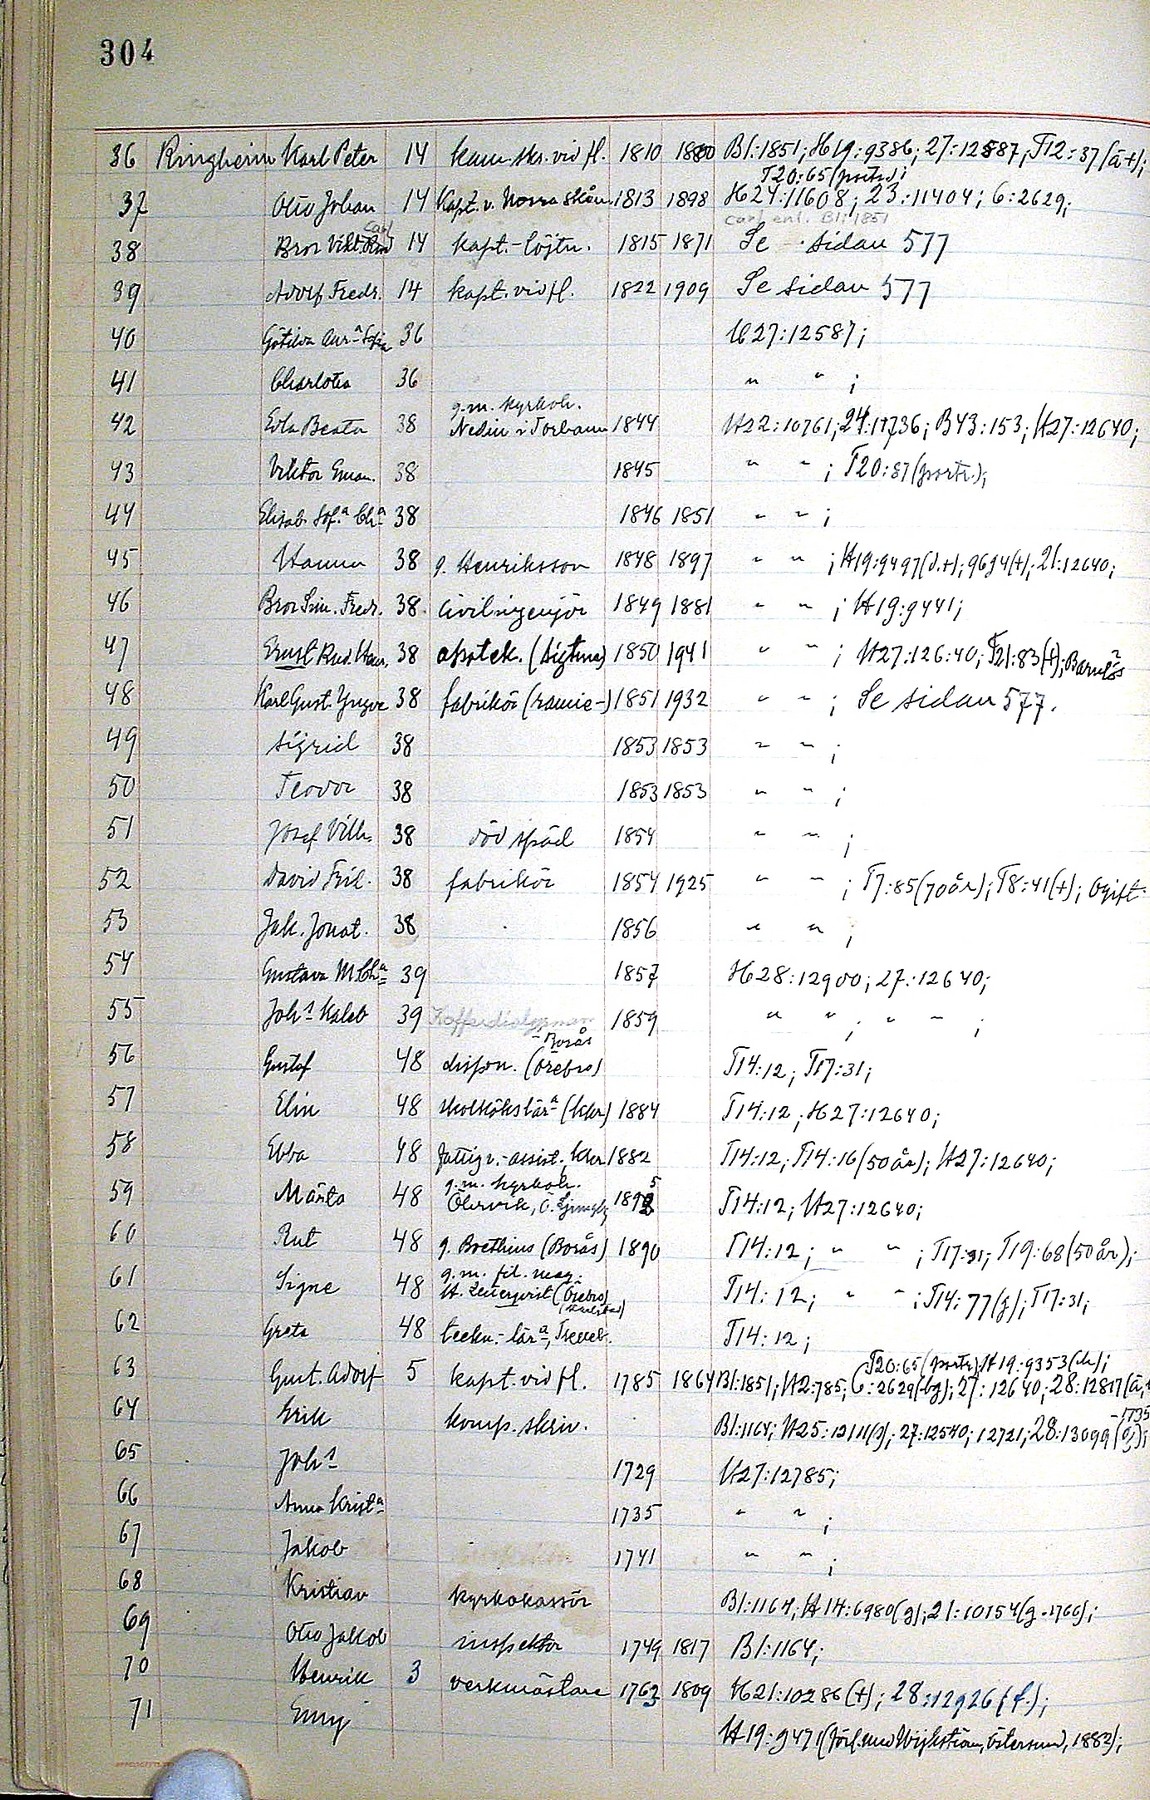 304
36 Ringheim Karl Peter 14 kam.skr. vid fl. 1810 1880 B1:1851; H19:9386; 27:12587; T12:37(å+);
T20:65(portr.);
37 Otto Johan 14 Kapt. v. Norra Skån. 1813 1898 H24:11608; 23:11404; 6:2629;
Carl enl. B1:1851
Carl
38 Bror Vikt. 14 kapt.-löjtn. 1815 1871 Se sidan 577
39 Adolf Fredr. 14 kapt. vid fl. 1822 1909 Se sidan 577
40 Götilda 36 H27:12587;
41 Charlotta 36 " " ;
g.m. kyrkoh.
42 Eva Beata 38 Nedin i Torhamn 1844 H22:10761; 24:11736; B43:153; H27:12640;
43 Viktor Eman. 38 1845 " " ; T20:87(portr.);
44 Elisab. Sof.a Ch.a 38 1846 1851 " " ;
45 Hanna 38 g. Henriksson 1848 1897 " " ; H19:9497(d.+); 9694(+); 21:12640;
46 Bror Sim. Fredr. 38 civilingenjör 1849 1881 " " ; H19:9441;
47 Ernst Rud. Ham. 38 apotek. (Sigtuna) 1850 1941 " " ; H27:126:40; T21:83(+); Barnlös
48 Karl Gust. Yngve 38 fabrikör (ramie-) 1851 1932 " " ; Se sidan 577.
49 Sigrid 38 1853 1853 " " ;
50 Teodor 38 1853 1853 " " ;
51 Josef Vilh. 38 död späd 1854 " " ;
52 David Fril. 38 fabrikör 1854 1925 " " ; T7:85(70år); T8:41(+); Ogift
53 Jak. Jonat. 38 1856 " " ;
54 Gustava M.Ch.a 39 1857 H28:12900; 27:12640;
55 Joh.s Kaleb 39 1859 " " ; " " ;
- Borås
56 Gustaf 48 dispon. (Örebro) T14:12; T17:31;
57 Elin 48 skolkökslär.a (Kkr) 1884 T14:12; H27:12640;
58 Ebba 48 Fattigv.-assist., Kkr 1882 T14:12; T14:16(50år); H27:12640;
g.m. kyrkoh. 5
59 Märta 48 Ö. Ljungby 1892 T14:12; H27:12640;
60 Rut 48 g. Boethius (Borås) 1890 T14:12; " " ; T17:31; T19:68(50år);
g.m. fil. mag.
61 Signe 48 H. Zeuerqvist (Örebro) T14:12; " " ; T14:77(g); T17:31;
(Karlstad)
62 Greta 48 teckn.-lär.a, T14:12;
T20:65(portr.) H19:9353(ch);
63 Gust. Adolf 5 kapt. vid fl. 1785 1864 B1:1851; H2:785; 6:2629(bg); 27:12640; 28:12817(å,
-1735
64 Erik komp.skriv. B1:1164; H25:12111(g); 27:12540; 12721; 28:13099(g);
65 Joh.s 1729 H27:12785;
66 Anna Krist.a 1735 " " ;
67 Jakob 1741 " " ;
68 Kristian kyrkokassör B1:1164; H14:6980(g); 21:10154(g-1766);
69 Otto Jakob inspektor 1749 1817 B1:1164;
70 Henrik 3 verkmästare 1763 1809 H21:10286(+); 28:12926(f.);
71 Emy H19:9471(förl. med Wijkström, Östersund, 1882);